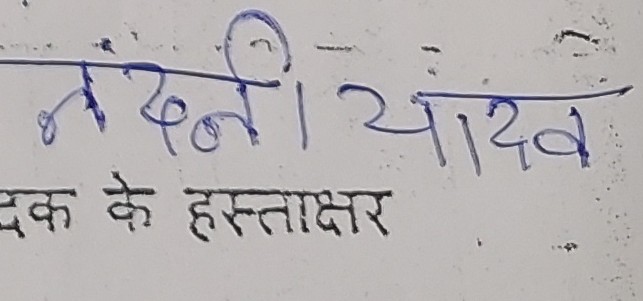 नंदनी यादव
दक के हस्ताक्षर